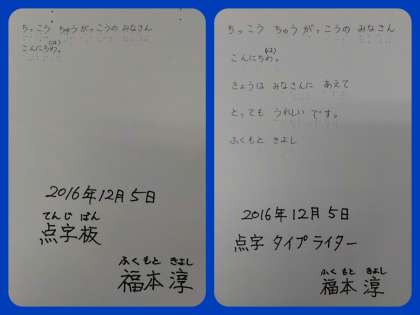 ちっこう ちゅうがっこうの みなさん
(は)
こんにちわ。
2016年12月5日
てんじ ばん
点字板
ふくもと きよし
福本 淳
ちっこう ちゅうがっこうの みなさん
(は)
こんにちわ。
きょうは みなさんに あえて
とっても うれしい です。
ふくもと きよし
2016年12月5日
点字 タイプライター
ふくもと きよし
福本 淳